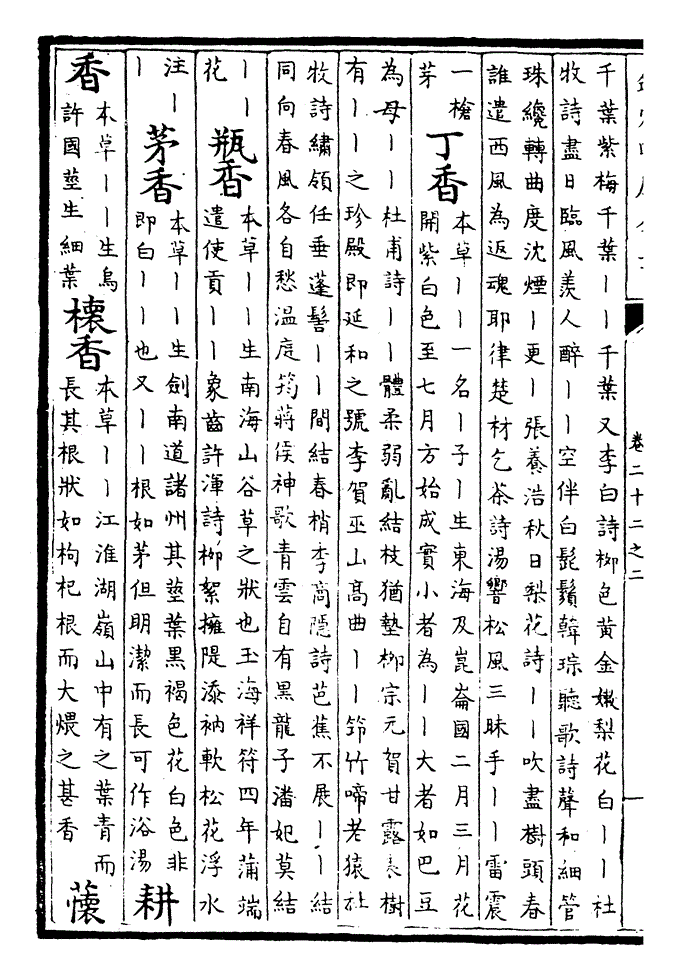 卷二十二之二
一
千葉紫梅千葉丨丨千葉又李白詩柳色黄金嫩梨花白丨丨杜
牧詩盡日臨風羡人醉丨丨空伴白髭鬚韓琮聽歌詩聲和細管
珠纔轉曲度沈煙丨更丨張養浩秋日梨花詩丨丨吹盡樹頭春
誰遣西風為返魂耶律楚材乞茶詩湯響松風三昧手丨丨雷震
一槍
茅
丁香
本草丨丨一名丨子丨生東海及崑崙國二月三月花
開紫白色至七月方始成實小者為丨丨大者如巴豆
為母丨丨杜甫詩丨丨體柔弱亂結枝猶墊柳宗元賀甘露表樹
有丨丨之珍殿即延和之號李賀巫山高曲丨丨筇竹啼老猿杜
牧詩繡領任垂蓬髻丨丨間結春梢李商隱詩芭蕉不展丨丨結
同向春風各自愁溫庭筠蔣侯神歌青雲自有黑龍子潘妃莫結
丨丨
花
瓶香
本草丨丨生南海山谷草之狀也玉海祥符四年蒲端
遣使貢丨丨象齒許渾詩柳絮擁隄添衲軟松花浮水
注丨
丨
茅香
本草丨丨生劍南道諸州其莖葉黑褐色花白色非
即白丨丨也又丨丨根如茅但明潔而長可作浴湯
耕
香
本草丨丨生烏
許國莖生細葉
櫰香
本草丨丨江淮湖嶺山中有之葉青而
長其根狀如枸杞根而大煨之甚香
蘹